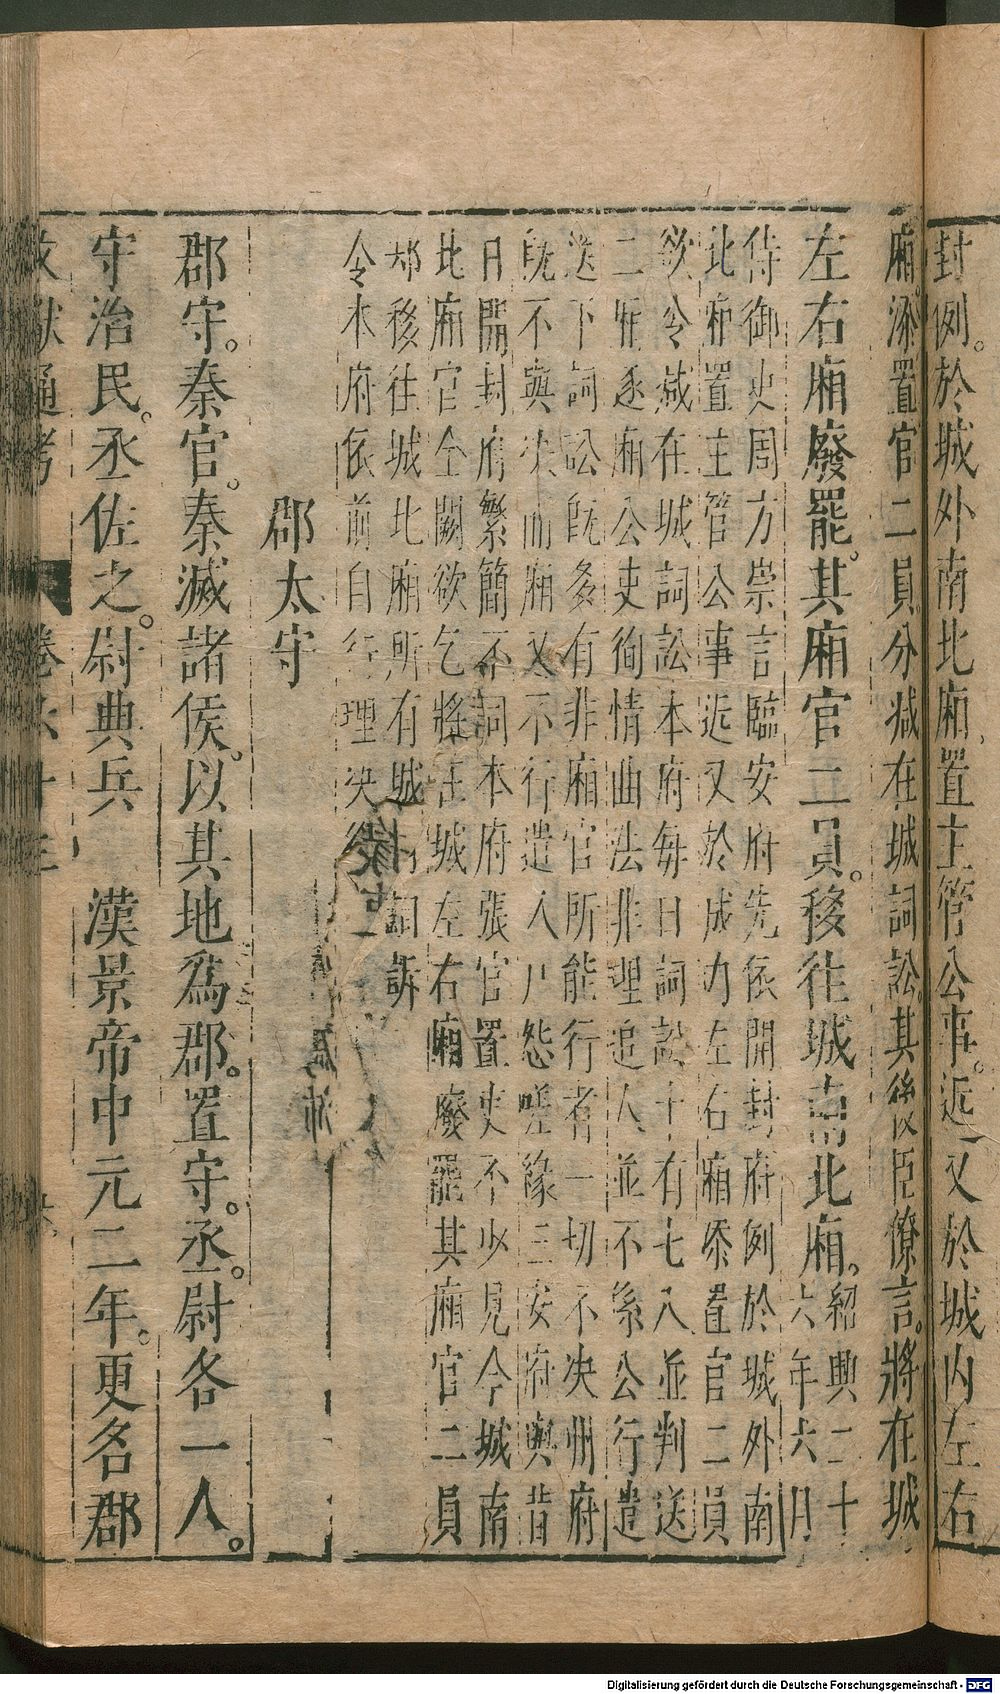 封例。於城外南北廂置主管公事。近又於城內左右
廂添置官二員分减在城詞訟。其後臣僚言。將在城
左右廂廢罷。其廂官二員。移往城南北廂。紹興二十
六年六月
侍御史周方崇言臨安府先依開封府例於城外南
北廂置主管公事近又於成内左右廂添置官二員
欲令减在城詞訟本府每日詞訟十有七八並判送
二廂逐廂公吏徇情曲法非理追人並不係公行遣
送下詞訟旣多有非廂官所能行者一切不决州府
旣不與决而廂又不行遣人户怨嗟緣臨安府與昔
日開封府繁簡不同本府張官置吏不少見今城南
北廂官全闕欲乞將在城左右廂廢罷其廂官二員
却移往城北廂所有城詞訴
令本府依前自行理决
郡太守
郡守。秦官。秦滅諸侯。以其地爲郡。置守。丞。尉各一人。
守治民。丞佐之。尉典兵 漢景帝中元二年。更名郡
文獻通考 卷六十三
Digitalisierung gefördert durch die Deutsche Forschungsgemeinschaft - DFG